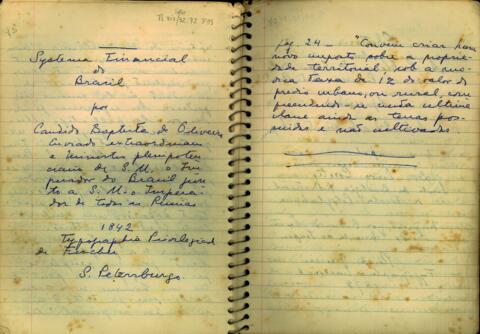 Systema Financial
do
Brasil
por
Candido Baptista de Oliveira
Enviado extraordinario
e Ministro plenipoten
ciario de S. M. o Im
perador do Brasil jun
to a S. M. o Impera
dor de todas as Russias
1842
Typographia Privilegiada
de Fischer
S. Petersburgo.
pg. 24 — "Convem criar hum
novo imposto sobre a proprie
dade territorial, sob a mo
dica taxa de 1/2 do valor do
predio urbano, ou rural, com
prehendendo-se nesta ultima
classe ainda as terras pos
suidas e não cultivadas